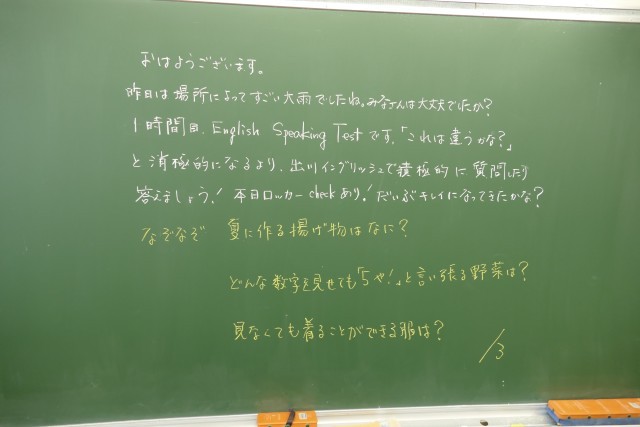 おはようございます。
昨日は場所によってすごい大雨でしたね。みなさんは大丈夫でしたか?
1時間目、English Speaking Testです。「これは違うかな?」
と消極的になるより、出川イングリッシュで積極的に質問したり
答えましょう!本日ロッカーcheckあり!だいぶキレイになってきたかな?
なぞなぞ 夏に作る揚げ物はなに?
どんな数字を見せても「5や!」と言い張る野菜は?
見なくても着ることができる服は?
/3